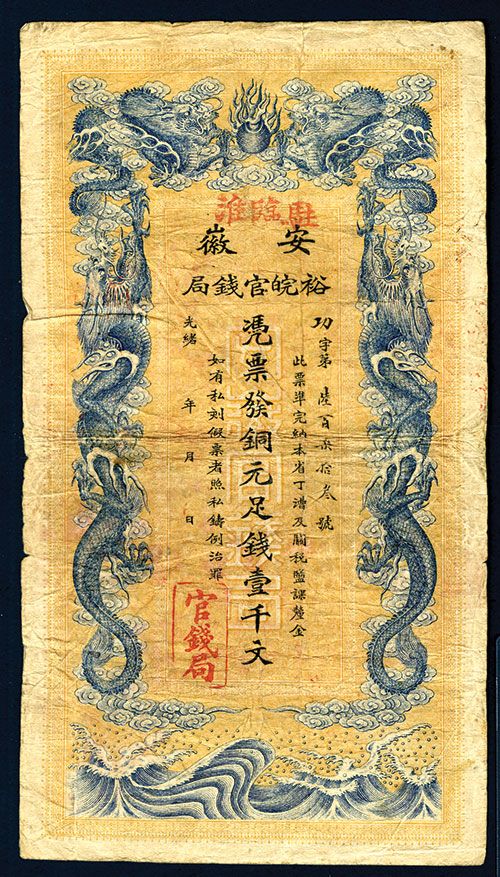 駐臨淮
安徽
裕皖官錢局
功字第陸百柒拾叁號
此票準完納本省丁漕及關稅鹽課釐金
憑票發銅元足錢壹千文
如有私刻假票者照私鑄例治罪
光緒 年 月 日
官錢局